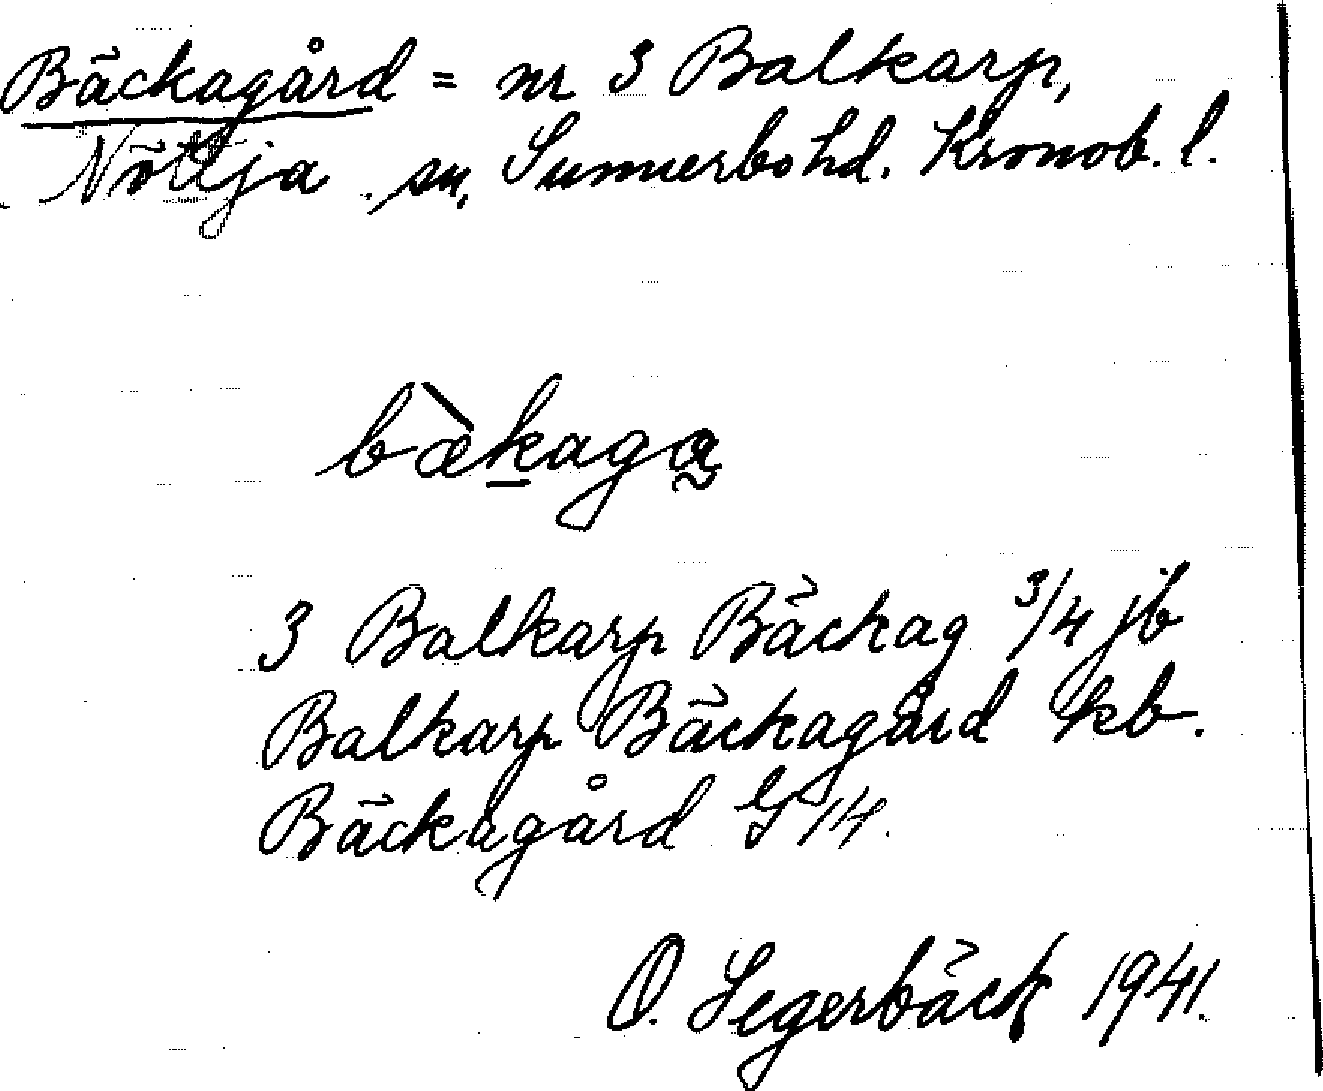 Bäckagård = nr 3 Balkarp,
Nöttja sn, Sunnerbo hd. Kronob. l.
bæ̀kaga
3 Balkarp Bäckag 3/4 jb
Balkarp Bäckagård kb.
Bäckagård G14.
O. Segerbäck 1941.